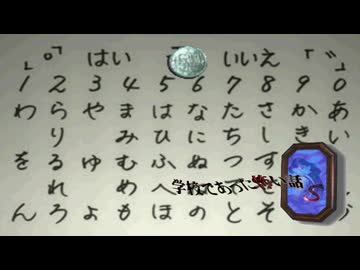 「゜」 はい いいえ 「゛」
1 2 3 4 5 6 7 8 9 0
わ ら や ま は な た さ か あ
り み ひ に ち し き い
を る ゆ む ふ ぬ つ す
れ め へ
ん ろ よ も ほ の と そ
学校であった怖い話
S